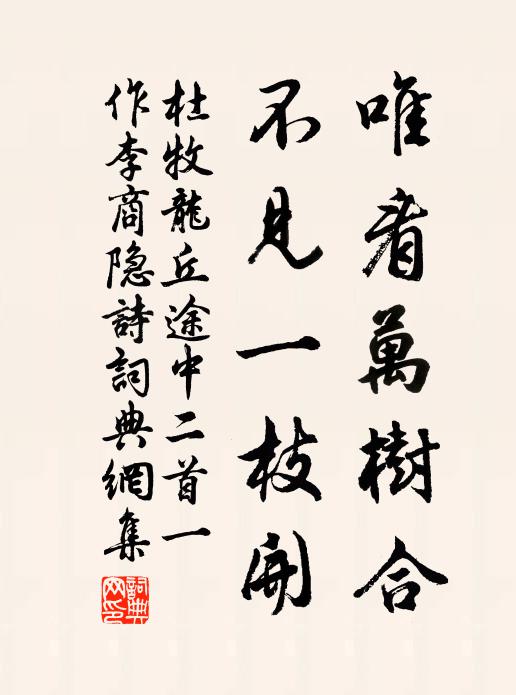 唯看萬樹合
不見一枝開
杜牧龍丘途中二首一
作李商隐詩詞典網集
詞典
网印